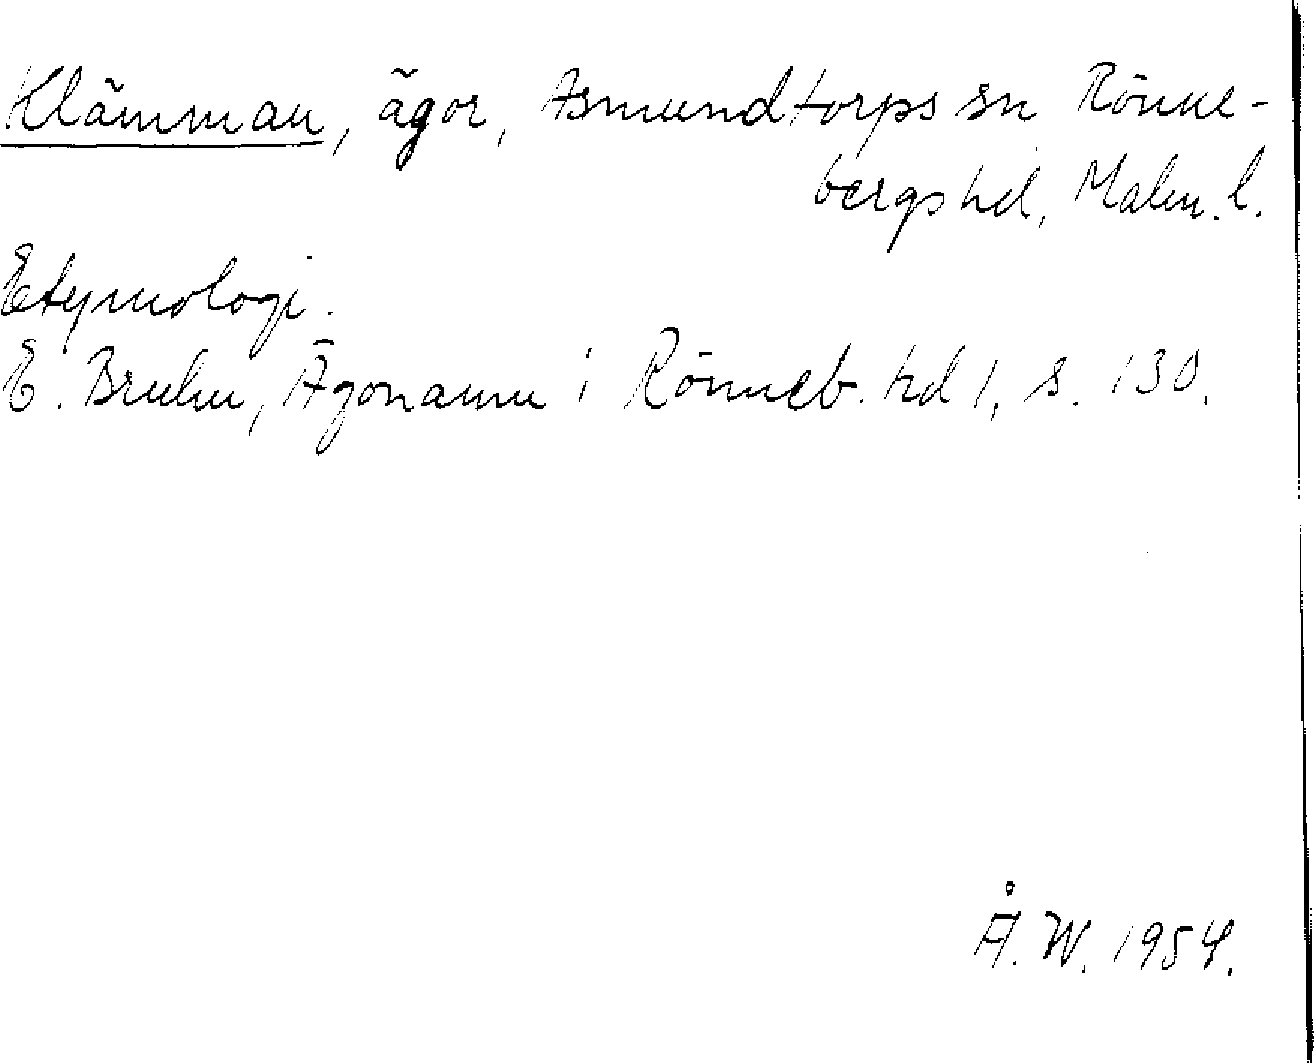 Klämman, ägor, Asmundtorps sn Rönne-
bergs hd, Malm. l.
Etymologi.
E. Bruhn, Ägonamn i Rönneb. hd 1, s. 130.
Å. W. 1954.